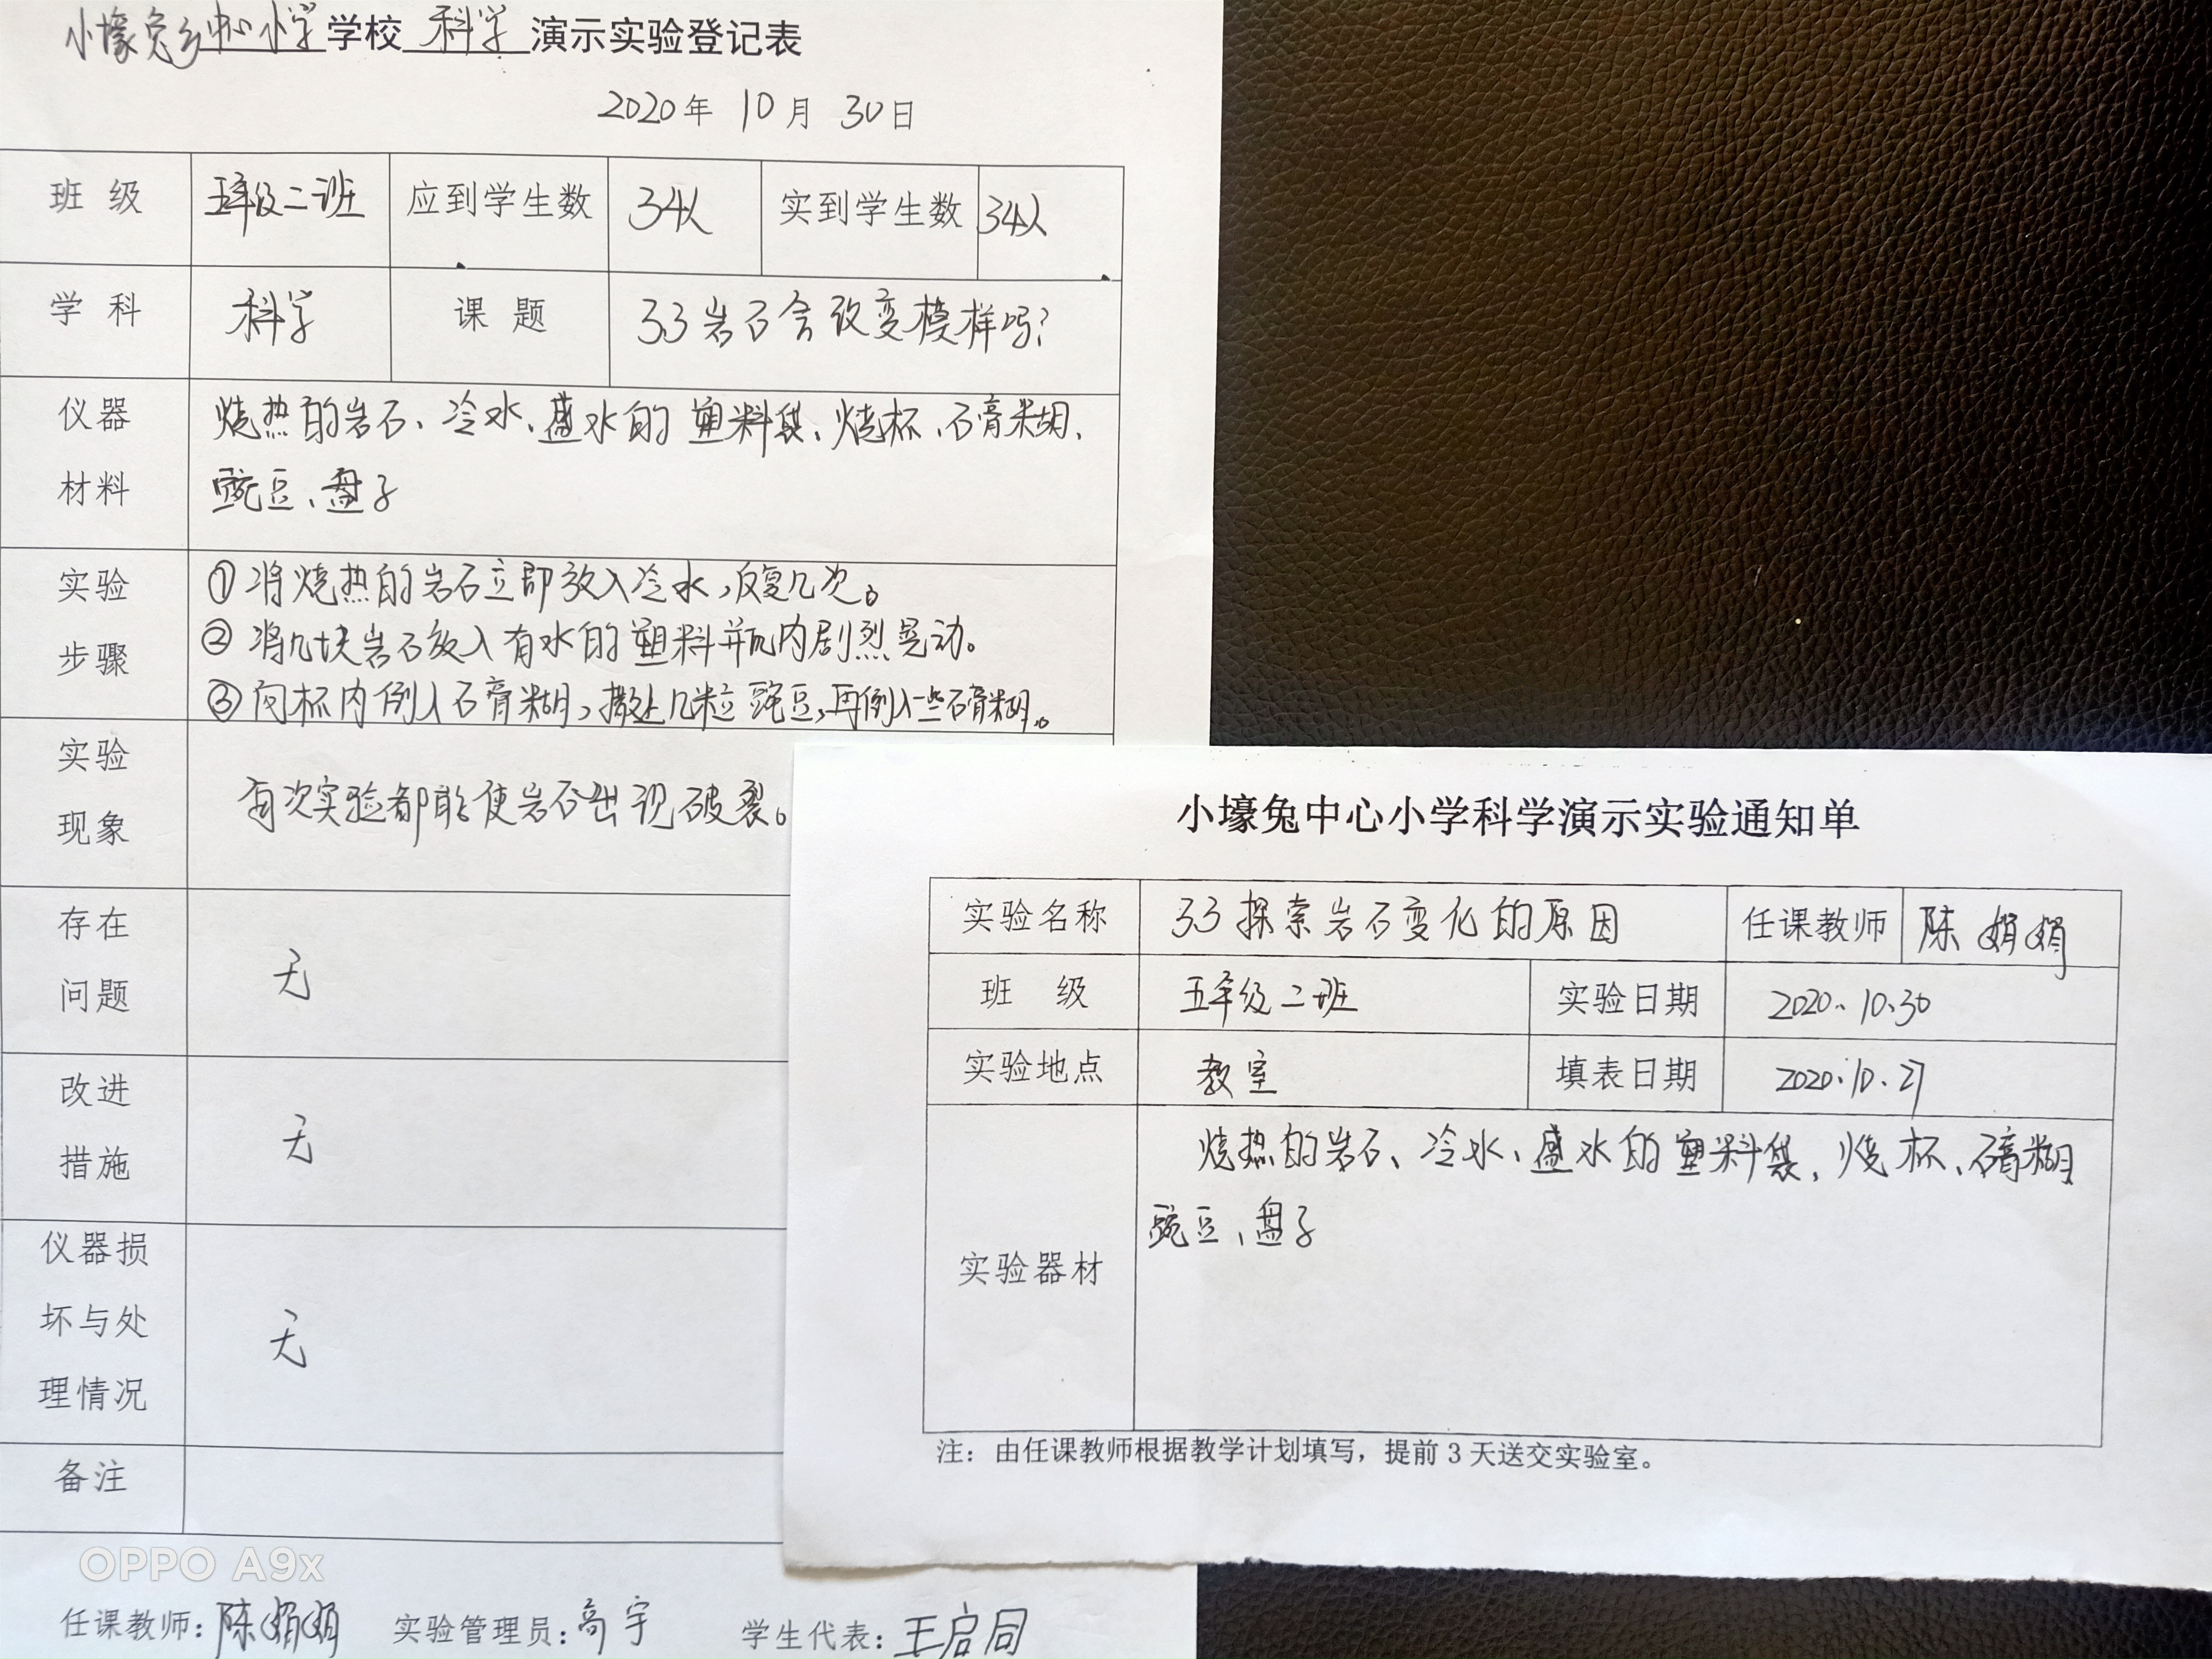 小壕兔乡中心小学学校 科学 演示实验登记表
2020年 10月 30日
班 级 五年级二班 应到学生数 34人 实到学生数 34人
学 科 科学 课 题 3.3岩石会改变模样吗?
仪器 烧热的岩石、冷水、盛水的塑料袋、烧杯、石膏糊、
材料 豌豆、盘子
实验 ①将烧热的岩石立即放入冷水,反复几次。
步骤 ②将几块岩石放入有水的塑料瓶内剧烈晃动。
③向杯内倒入石膏糊,撒上几粒豌豆,再倒入一些石膏糊。
实验
现象 每次实验都能使岩石出现破裂。
存在
问题 无
改进
措施 无
仪器损
坏与处 无
理情况
备注
OPPO A9x
任课教师:陈娟娟 实验管理员:高宇 学生代表:王启同
小壕兔中心小学科学演示实验通知单
实验名称 3.3探索岩石变化的原因 任课教师 陈娟娟
班 级 五年级二班 实验日期 2020.10.30
实验地点 教室 填表日期 2020.10.27
烧热的岩石、冷水、盛水的塑料袋、烧杯、石膏糊
豌豆、盘子
实验器材
注:由任课教师根据教学计划填写,提前3天送交实验室。